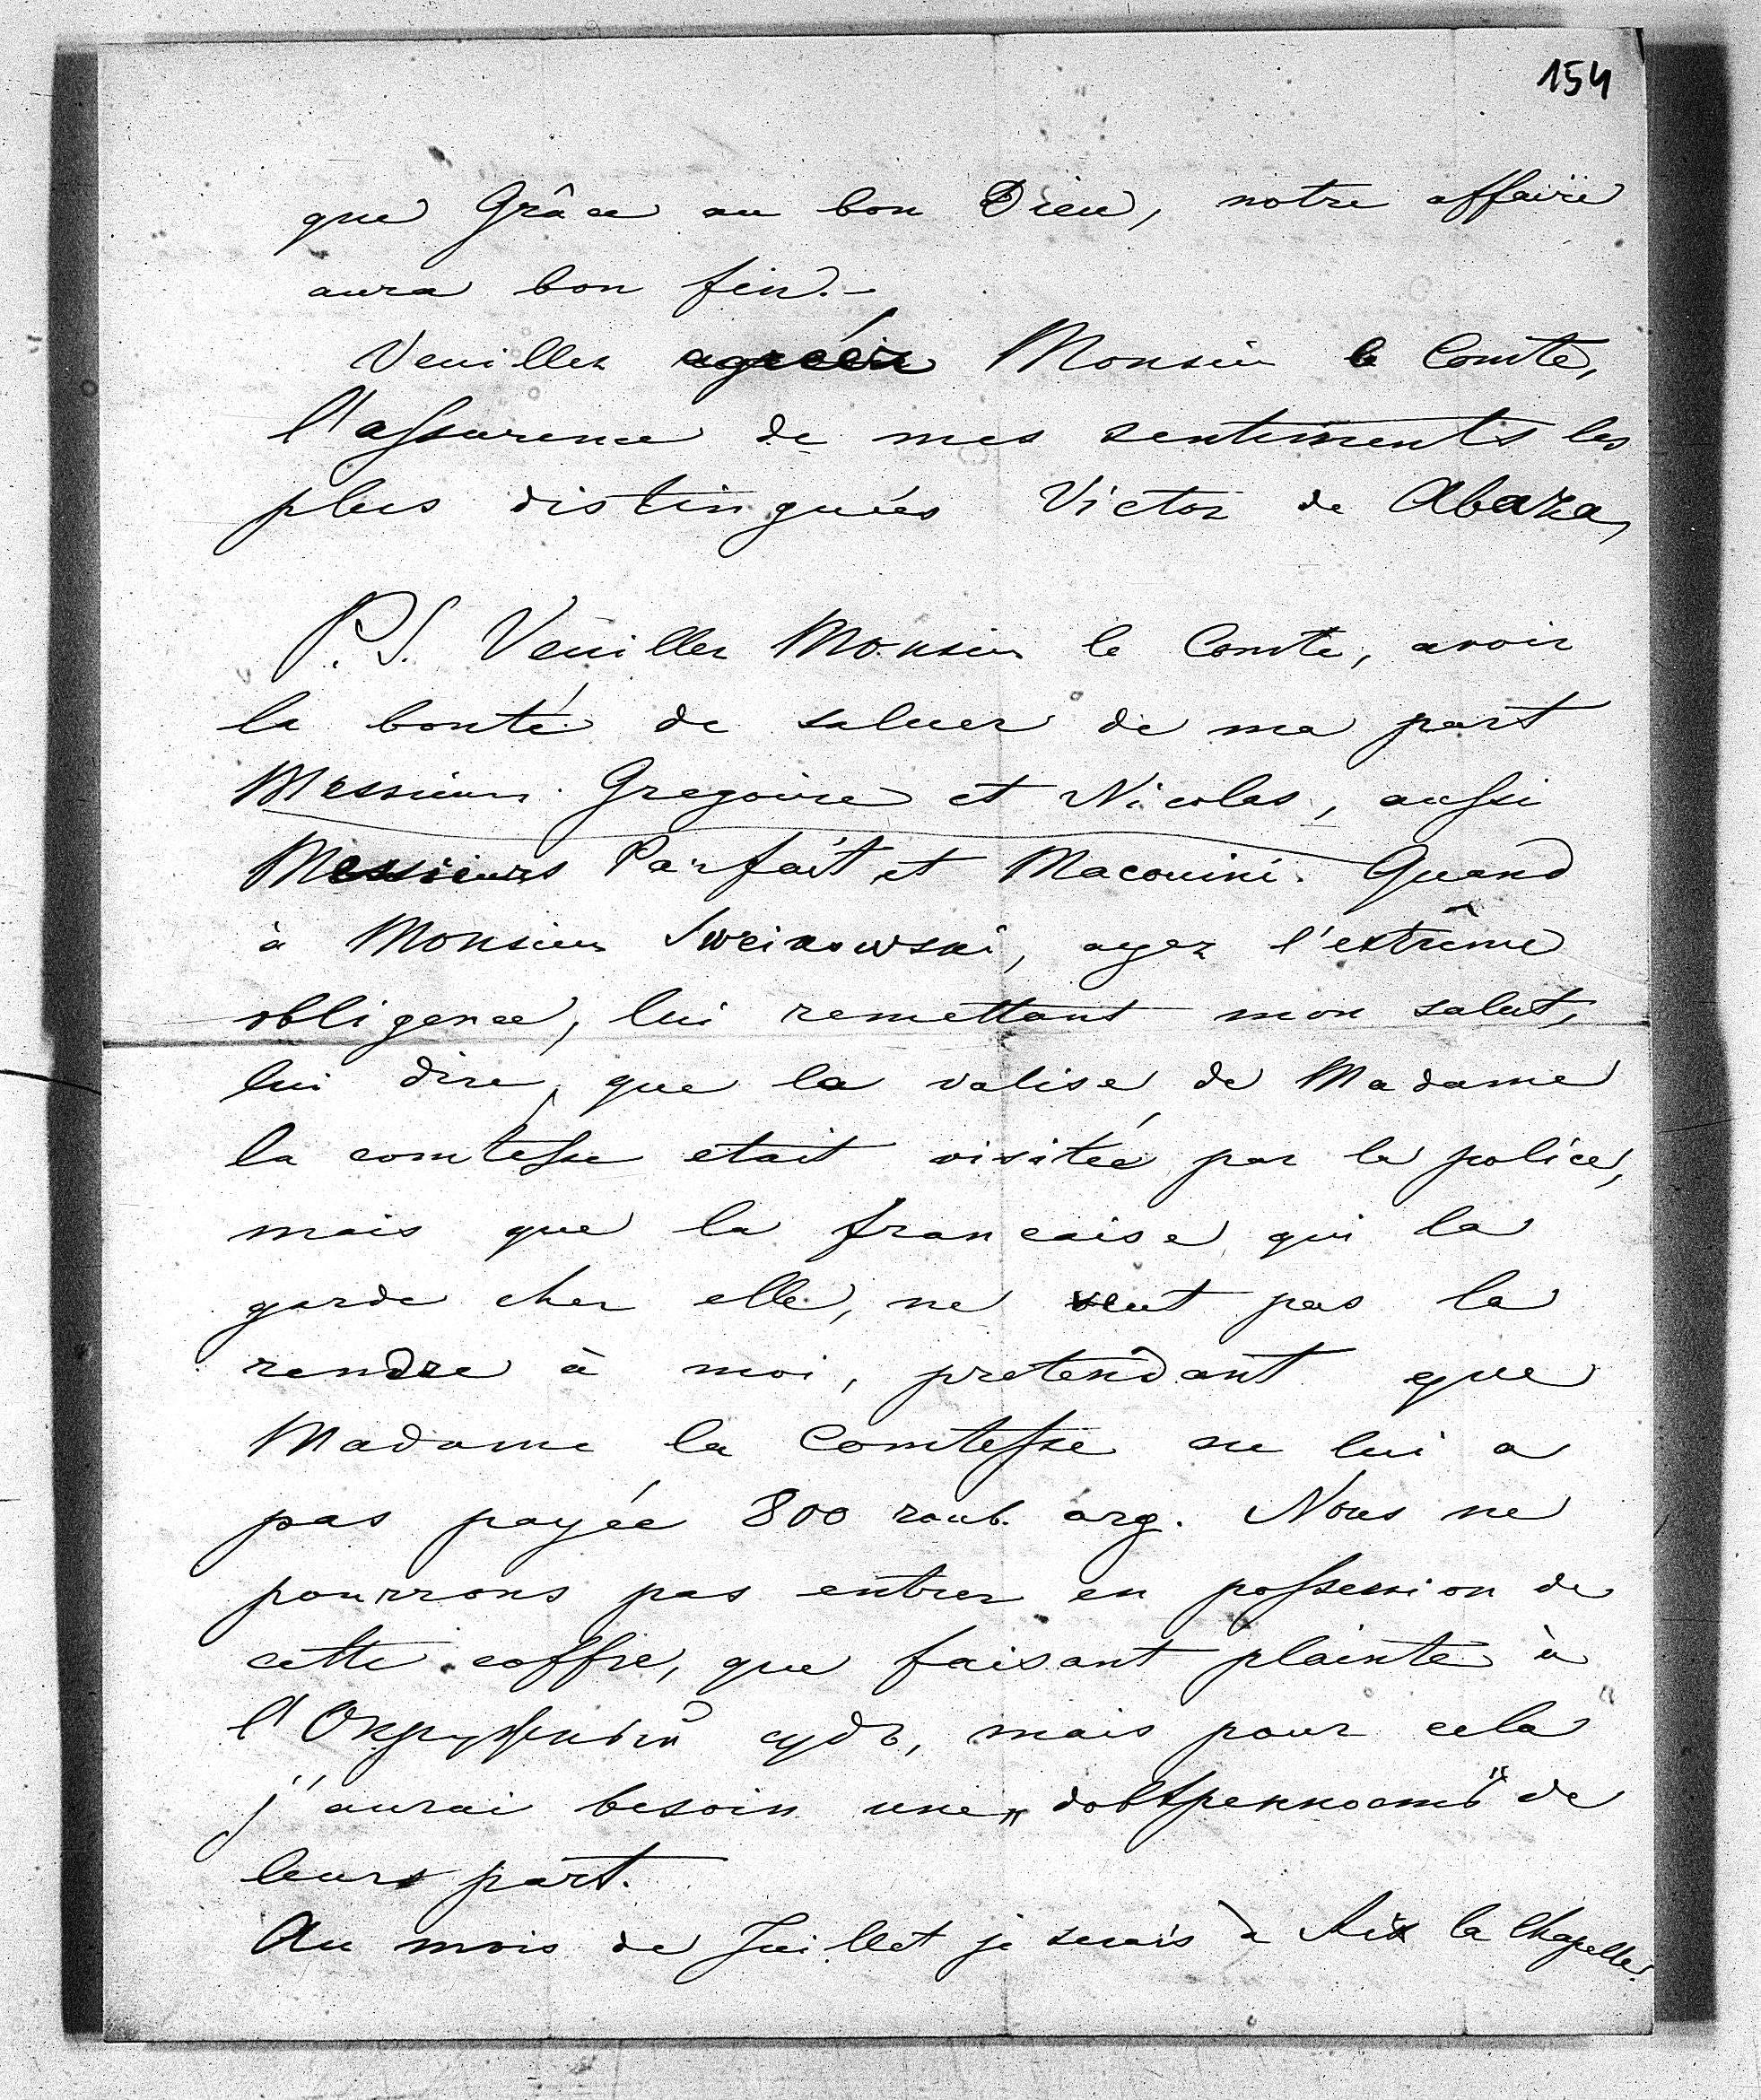 154
que Grâce au bon Dieu, notre affaire
aura bon fin.-
Veuillez agréer Monsieur le Comte,
l'assurence de mes sentiments les
plus distingués Victor de Abaza,
P.S. Veuillez Monsieur le Comte, avoir
la bonté de saluer de ma part
Messieurs Gregoire et Nicolas, aussi
Messieurs Parfait et Macouini. Quand
à Monsieur Sweikowski, ayez l'extrême
obligence, lui remettant mon salut,
lui dire, que la valise de Madame
la comtesse etait visitée par la police,
mais que la francaise qui la
garde chez elle, ne veut pas la
rendre à moi, pretendant que
Madame la Comtesse ne lui a
pas payée 800 roub. arg. Nous ne
pourrons pas entrer en possession de
cette coffre, que faisant plainte à
l'Окружный судъ, mais pour cela
j'aurai besoin une „довѣренность" de
leurs part.
Au mois de Juillet je serais à Aix la Chapelle.